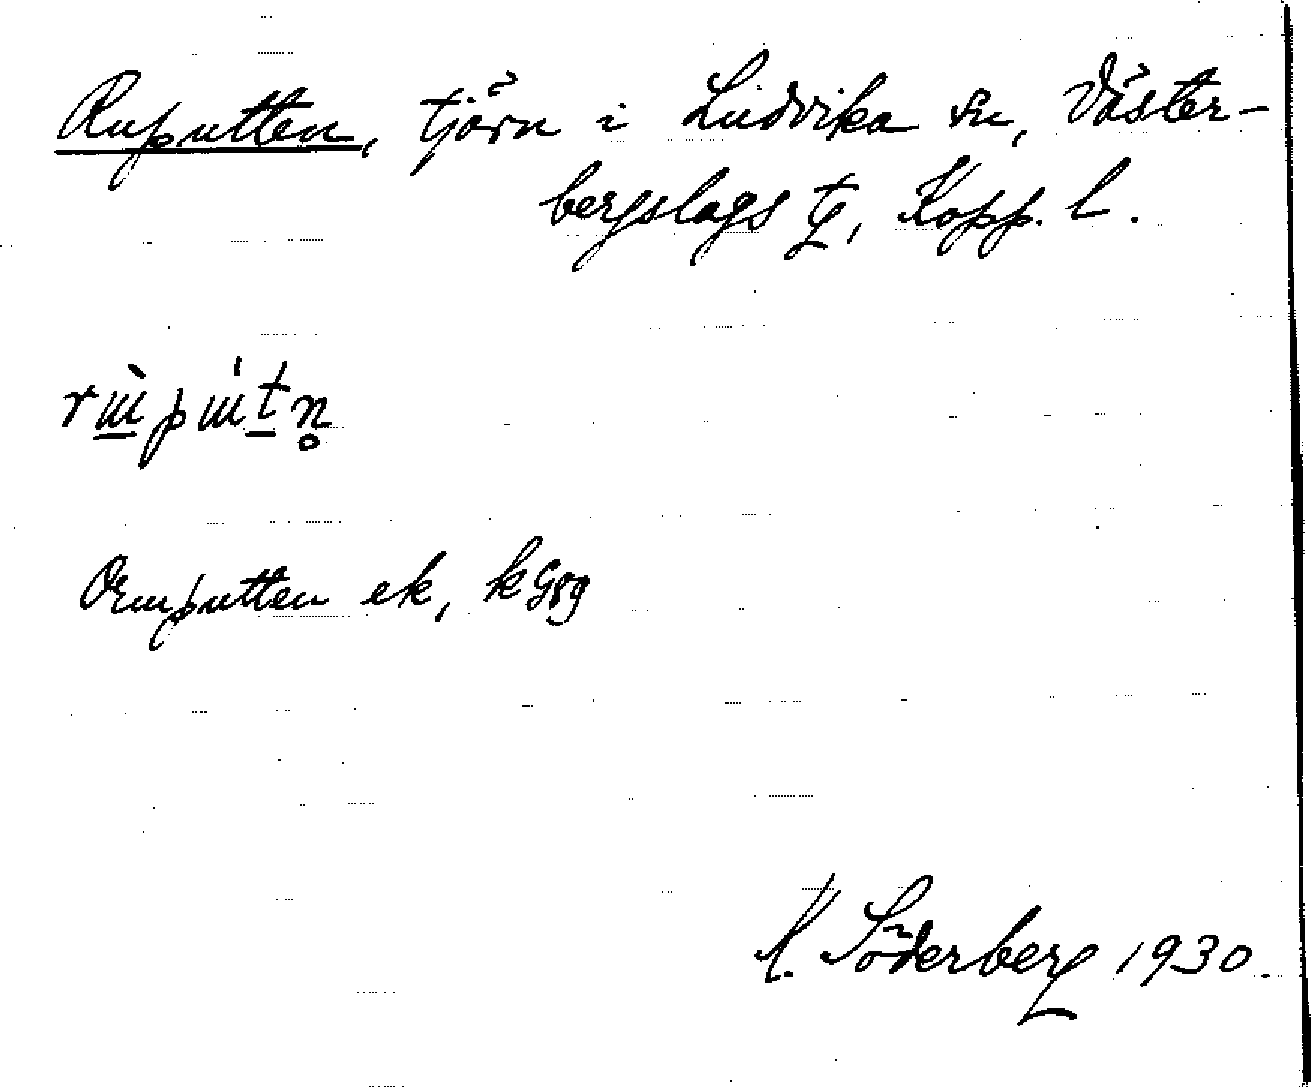 Ruputten, tjärn i Ludvika sn, Väster-
bergslags tg, Kopp. l.
Ormputten ek, k
Söderberg 1930.